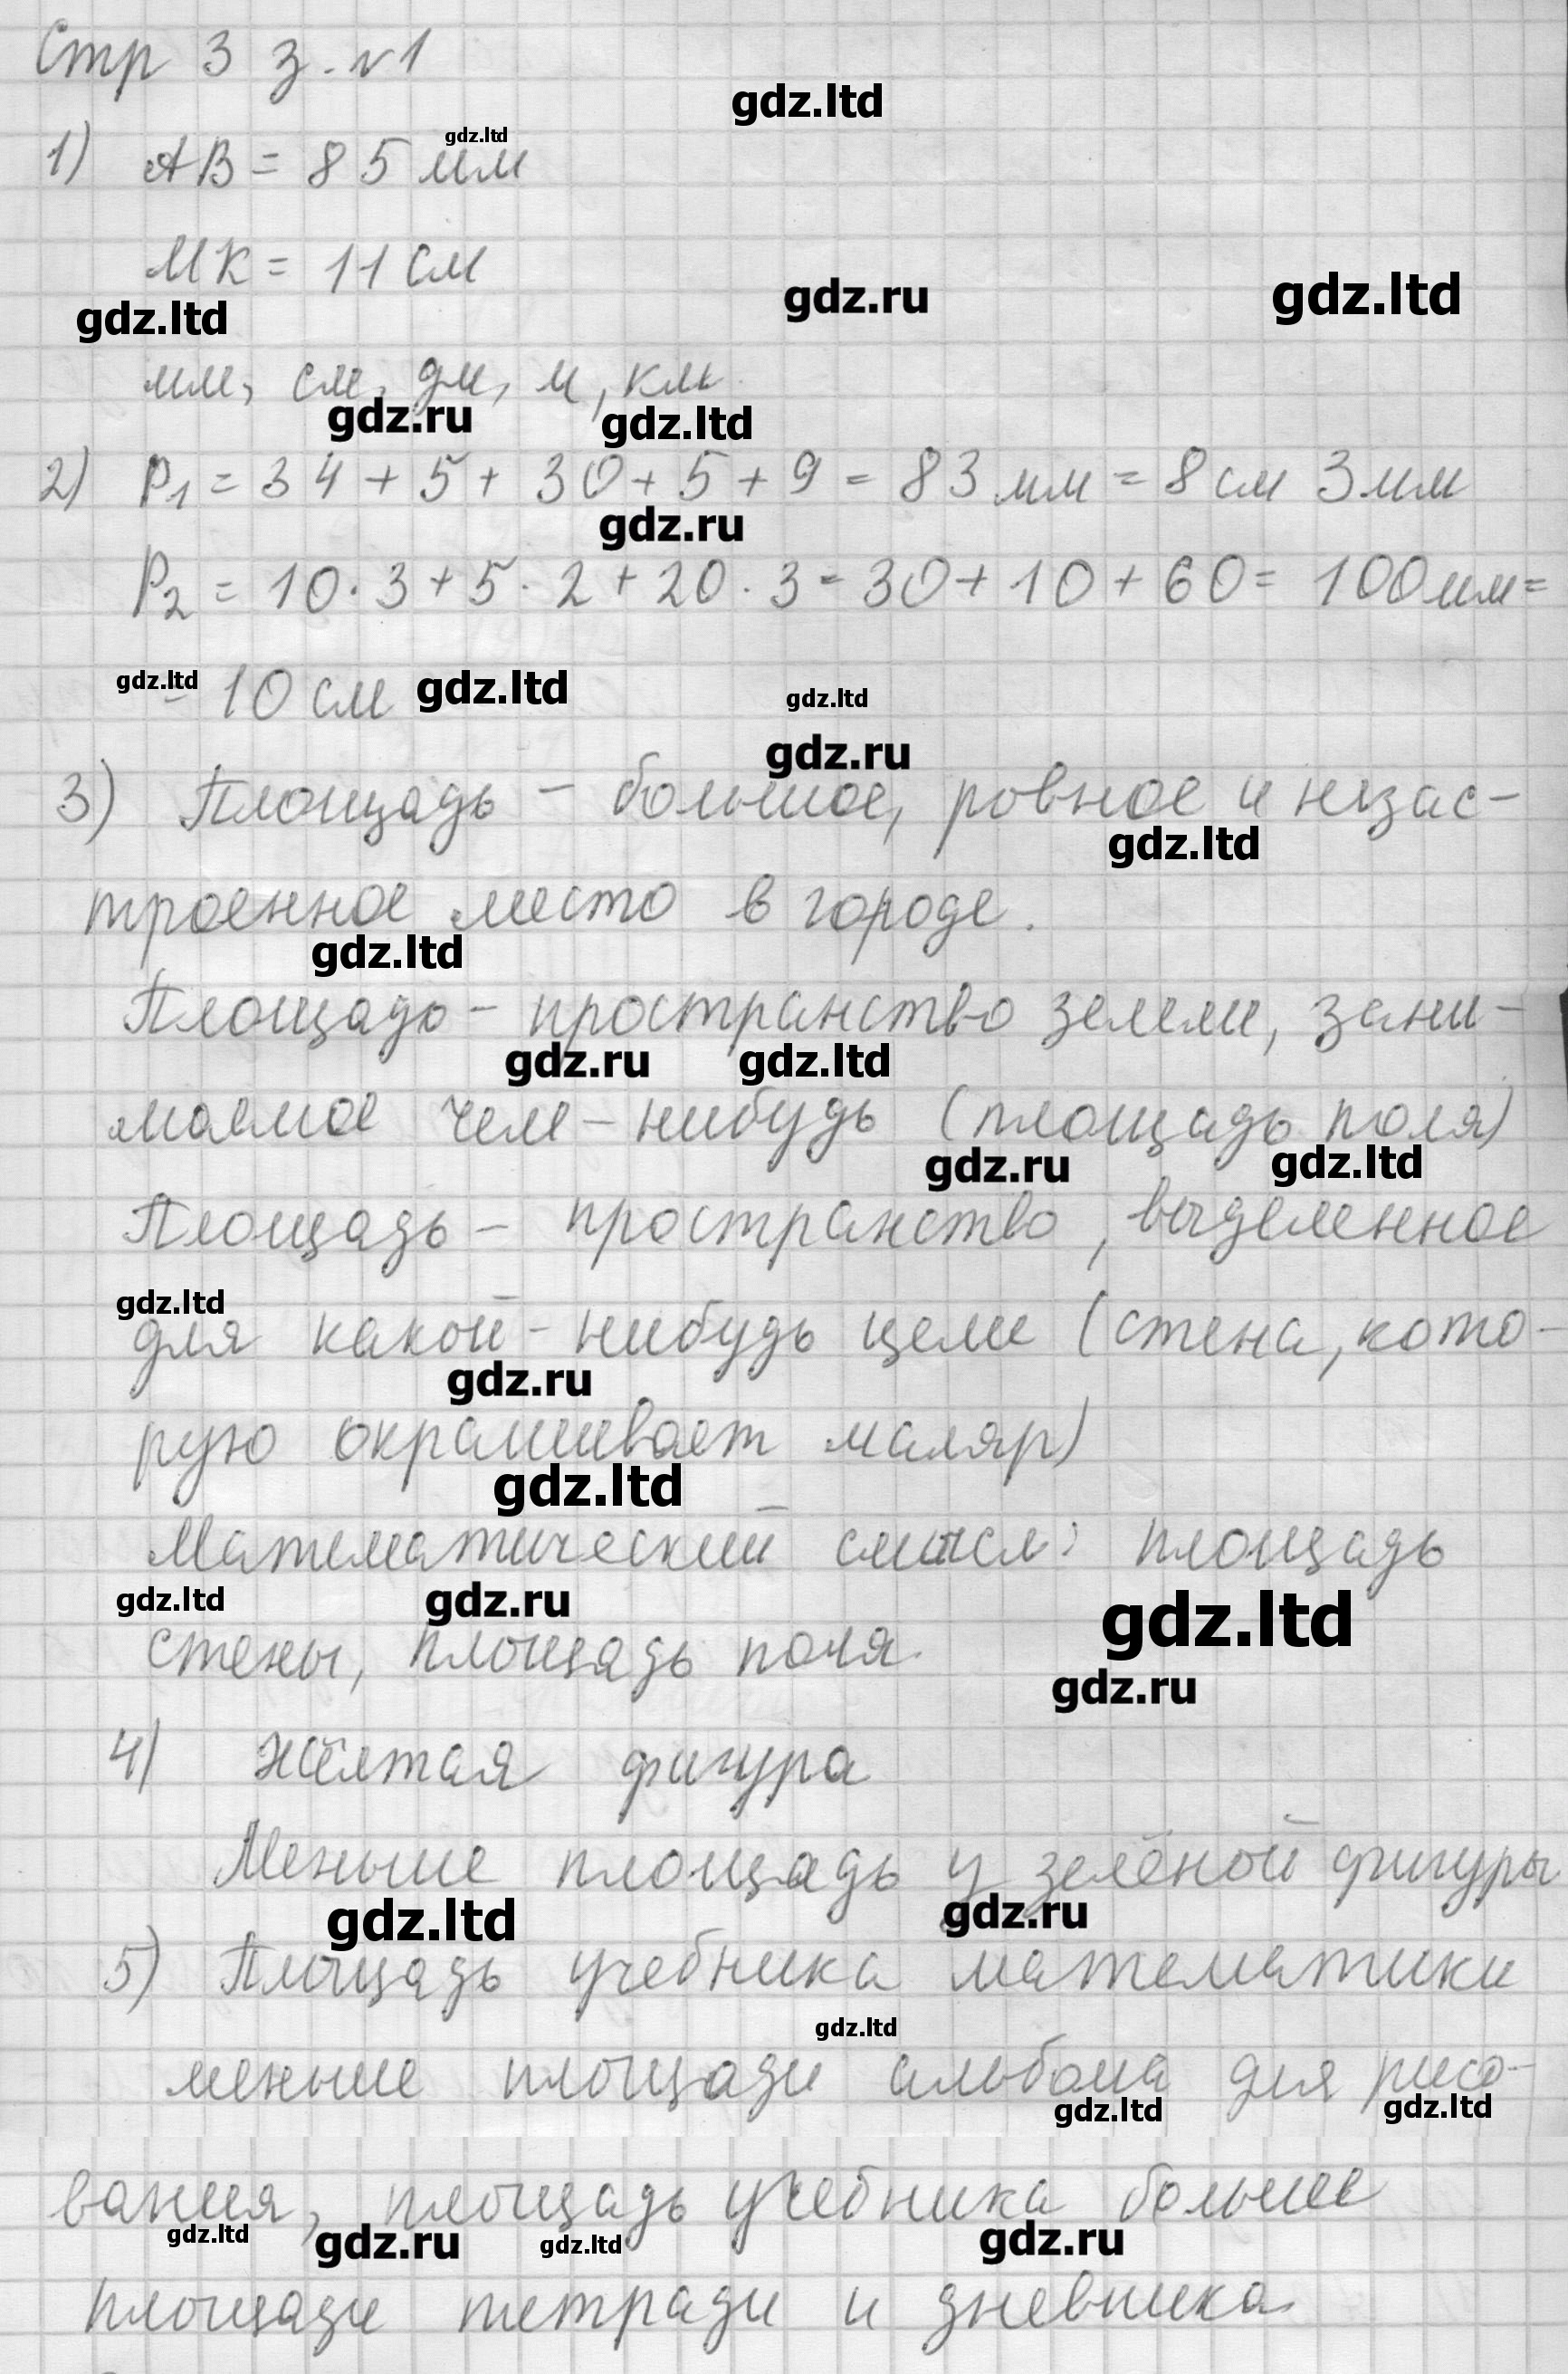 Стр 3 з. №1
gdz.ltd
gdz.ltd
1) АВ = 85 мм
МК = 11 см
gdz.ltd gdz.ru gdz.ltd
мм, см, дм, м, км
gdz.ru gdz.ltd
2) Р₁ = 34 + 5 + 30 + 5 + 9 = 83 мм = 8 см 3 мм
gdz.ru
Р₂ = 10 · 3 + 5 · 2 + 20 · 3 = 30 + 10 + 60 = 100 мм =
gdz.ltd = 10 см gdz.ltd gdz.ltd
gdz.ru
3) Площадь - большое, ровное и незас-
gdz.ltd
троенное место в городе.
gdz.ltd
Площадь - пространство земли, зани-
gdz.ru gdz.ltd
маемое чем-нибудь (площадь поля)
gdz.ru gdz.ltd
Площадь - пространство, выделенное
gdz.ltd
для какой-нибудь цели (стена, кото-
gdz.ru
рую окрашивает маляр)
gdz.ltd
Математический смысл: площадь
gdz.ltd gdz.ru gdz.ltd
стены, площадь поля.
gdz.ru
4) Жёлтая фигура
Меньше площадь у зелёной фигуры
gdz.ltd gdz.ru
5) Площадь учебника математики
gdz.ltd
меньше площади альбома для рисо-
gdz.ltd gdz.ltd
вания, площадь учебника больше
gdz.ltd gdz.ru gdz.ltd gdz.ru
площади тетради и дневника